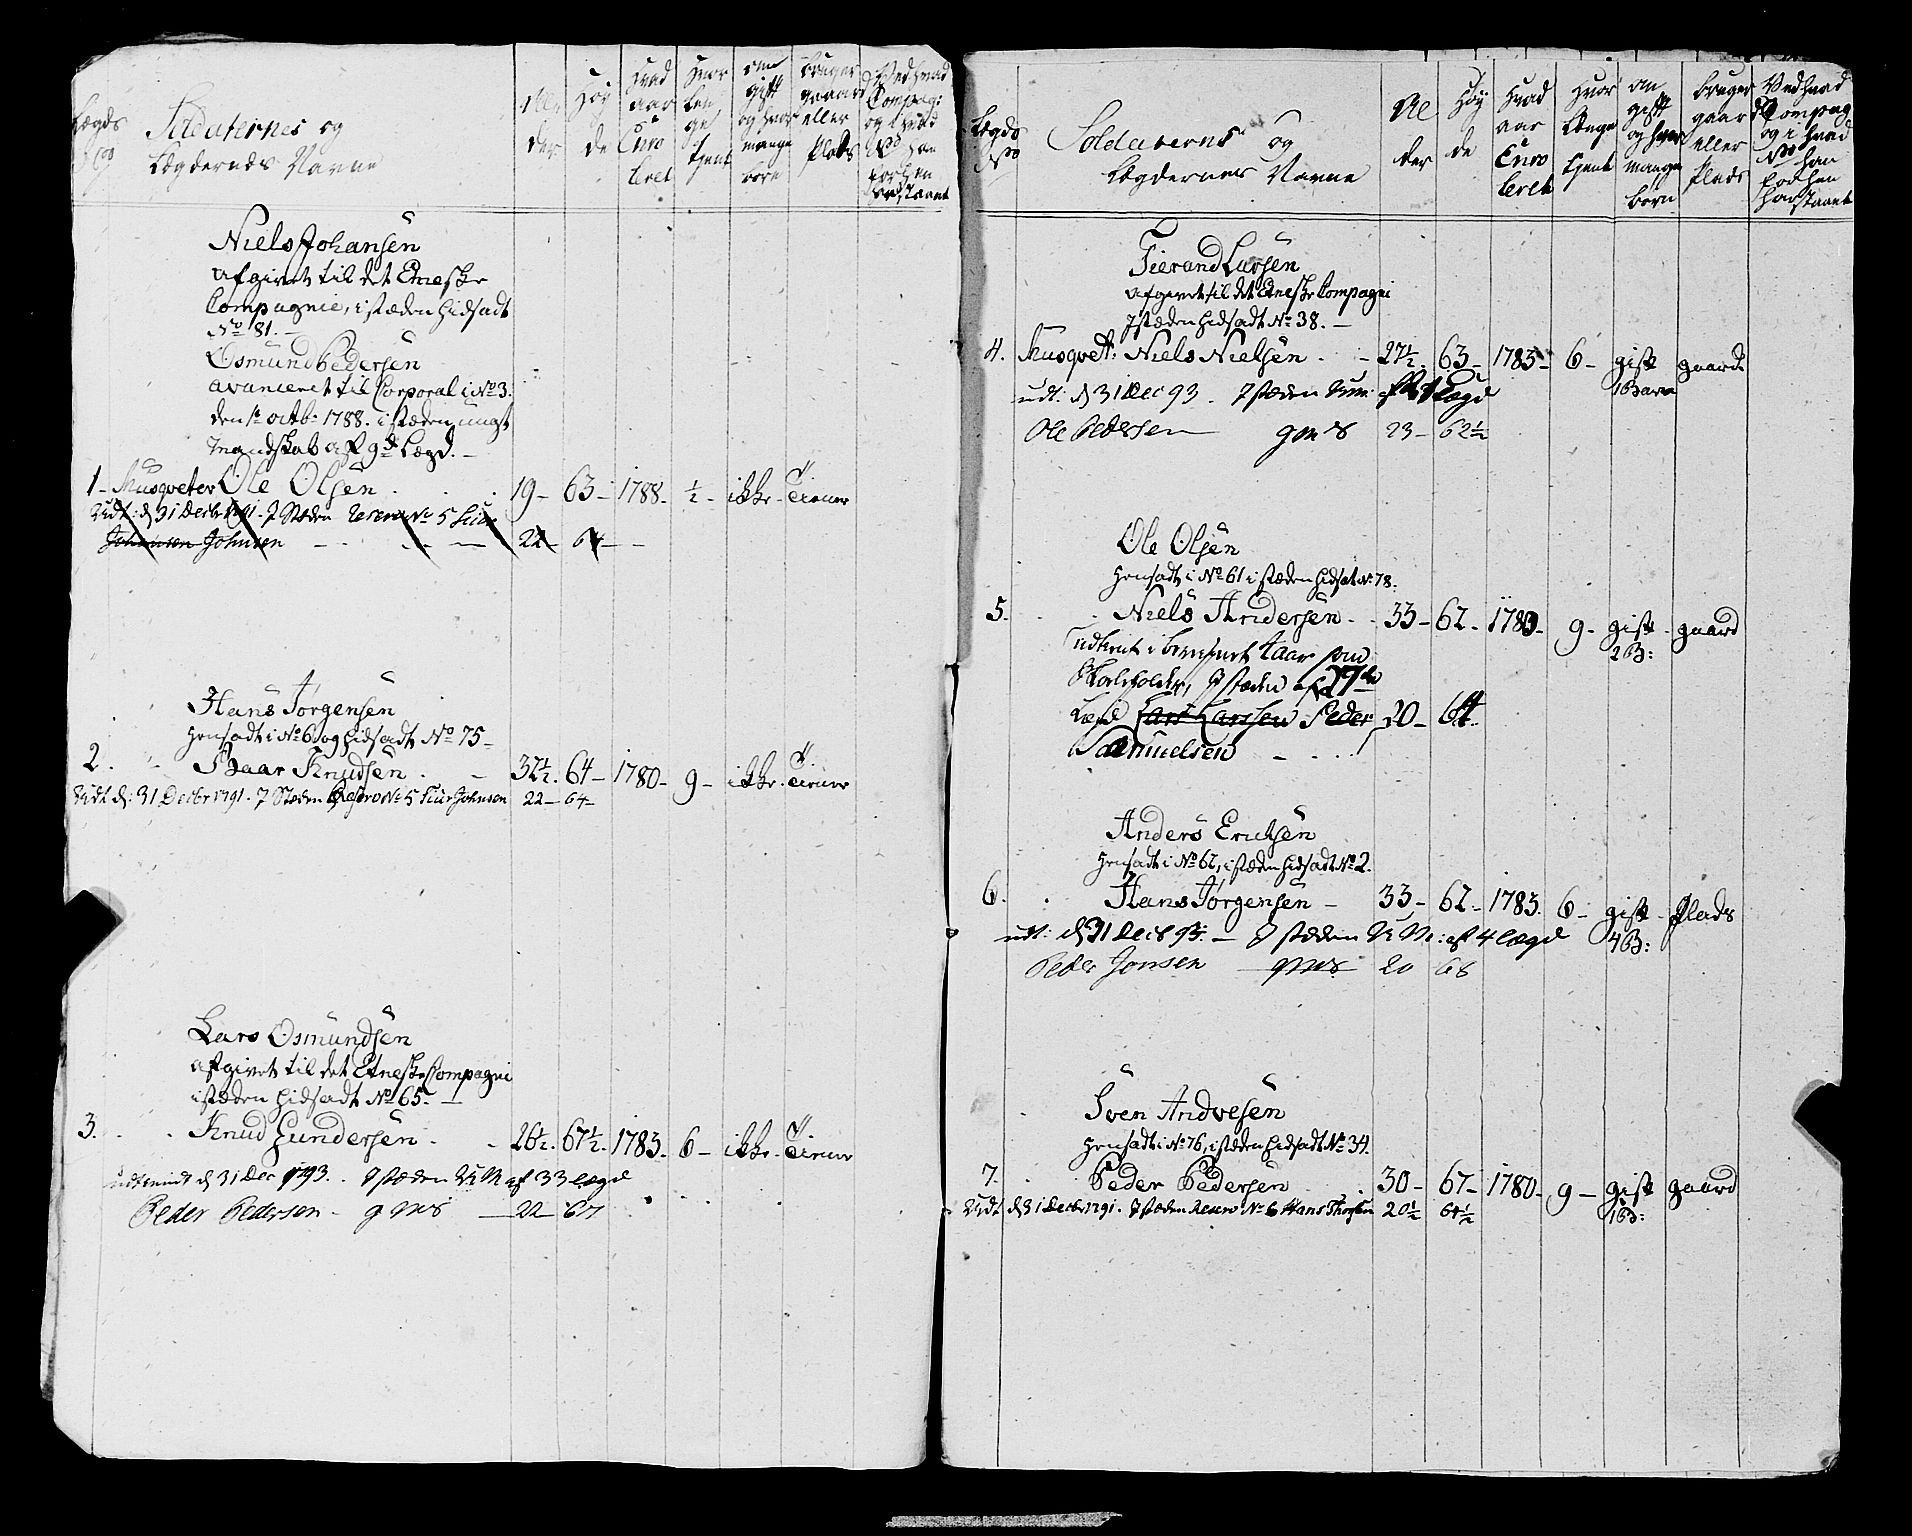 Lægds No
Soldaternes og
Lægdernes Navne
Al
der
Høy
de
Hvad
aar
Enro
leret
Hvor
len
ge
tjent
om
gift
og hvor
mange
børn
bruger
gaard
eller
Plads
Ved hvad
Compag:
og i hvad
No han
forhen
har staaet
Niels Johansen
afgivet til det Etneske
Compagnie, i stæden hidsadt
No 81. -
Osmund Pedersen
avanceret til Corporal i No 3.
den 1te octb: 1788. i stæden ungt
Mandskab af 9de Lægd. -
1 - Musqveter Ole Olsen 19 - 63 - 1788 - ½ - ikke - Tiener
Udt: d 31 Decbr 1791 - I Stæden Reserve No 5 Siur
Johansen Johnsen 22 - 64 -
Hans Jørgensen
hensadt i No 6 og hidsadt No 75 -
2. Knudsen 32½. 64 - 1780 - 9 - ikke - Tiener
Udt d: 31 Decbr 1791 - I Stæden Reserve No 5 Siur Johnsen 22 - 64 -
Lars Osmundsen
afgivet til det Etneske Compagni
i stæden hidsadt No 65. -
3. Knud Gundersen 26½. 67½. 1783. 6 - ikke - Tiener
udtient d 31 Dec 1793. I stæden U M af 33 lægd
Peder Pedersen - 22 67
Lægds
No
Soldaterns og
Lægdernes Navne
Al
der
Høy
de
Hvad
aar
Enro
leret
Hvor
Længe
tjent
om
gift
og hvor
mange
børn
bruger
gaard
eller
Plads
Ved hvad
Compag
og i hvad
No han
forhen
har staaet
Tierand Larsen
afgivet til det Etneske Compagni
I stæden hidsadt No 38. -
4. Musqvet: Niels Nielsen - 27½. 63 - 1783 - 6 - gift gaard
1 Barn
udt: d 31 Dec 93. I stæden Lægd
Ole Pedersen 23 - 62½
Ole Olsen
hensadt i No 61 i stæden hidsat No 78.
5. Niels Andersen - 33 - 62 - 1780 - 9 - gift - gaard
2 B:
udtient i
Skoleholder, I stæden af 27de
Lægd Lars Larssen Peder 20 - 64.
Samuelsen -
Anders Erichsen
hensadt i No 62, i stæden hidsadt No 2.
6. Hans Jørgensen - 33 - 62 - 1783. 6 - gift - Plads
4 B:
udt: d 31 Decb 93. - I stæden U M: af 4 lægd
Peder Jonsen 20 66
Sven Andresen
hensadt i No 76, i stæden hidsadt No 34.
7. Peder Pedersen 30 - 67 - 1780 - 9 - gift gaard
1 B:
Udt d 31 Decbr 1791. I stæden Reserv No 6 Hans Thorsen 20½ 64½